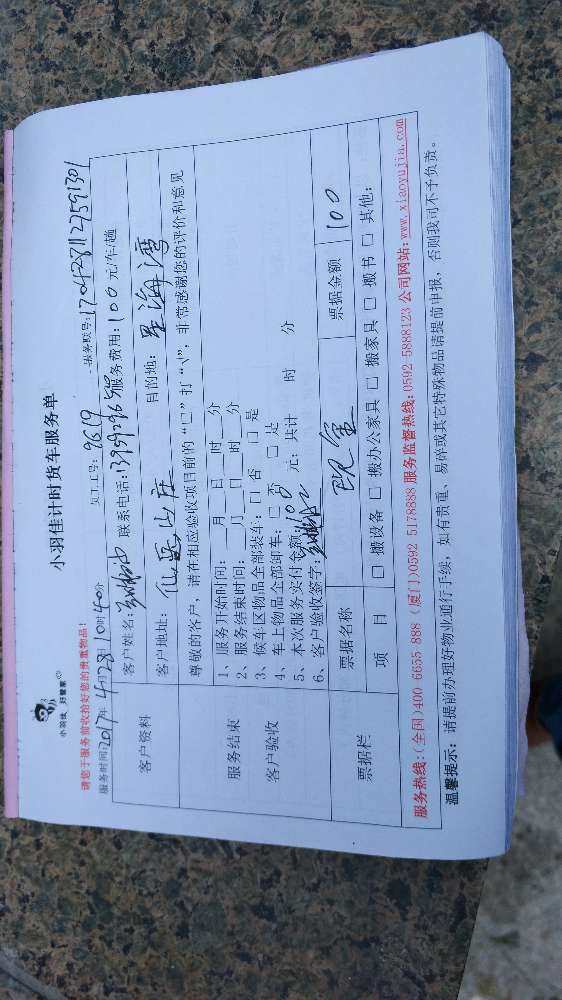 小羽佳计时货车服务单
小羽佳 好管家
请您于服务前收拾好您的贵重物品!
服务时间:2017年4月28日10时40分 员工工号:9619 服务账号:170428112759130
客户资料 客户姓名: 联系电话: 服务费用:100元/车/趟
客户地址:仙岳山庄 目的地:星海湾
服务结束 客户验收 尊敬的客户,请在相应验收项目前的“□”打“√”,非常感谢您的评价和意见
1、服务开始时间:___月___日___时___分
2、服务结束时间:___月___日___时___分
3、候车区物品全部装车:□ 否 □ 是
4、车上物品全部卸车:□ 否 □ 是
5、本次服务实付金额:100 元;共计 时 分
6、客户验收签字:
票据栏 票据名称 现金 票据金额 100
项 目 □ 搬设备 □ 搬办公家具 □ 搬家具 □ 搬书 □ 其他:
服务热线:(全国)400 6655 888 (厦门)0592 5178888 服务监督热线:0592-5888123 公司网站:www.xiaoyujia.com
温馨提示:请提前办理好物业通行手续,如有贵重、易碎或其它特殊物品请提前申报,否则我司不予负责。